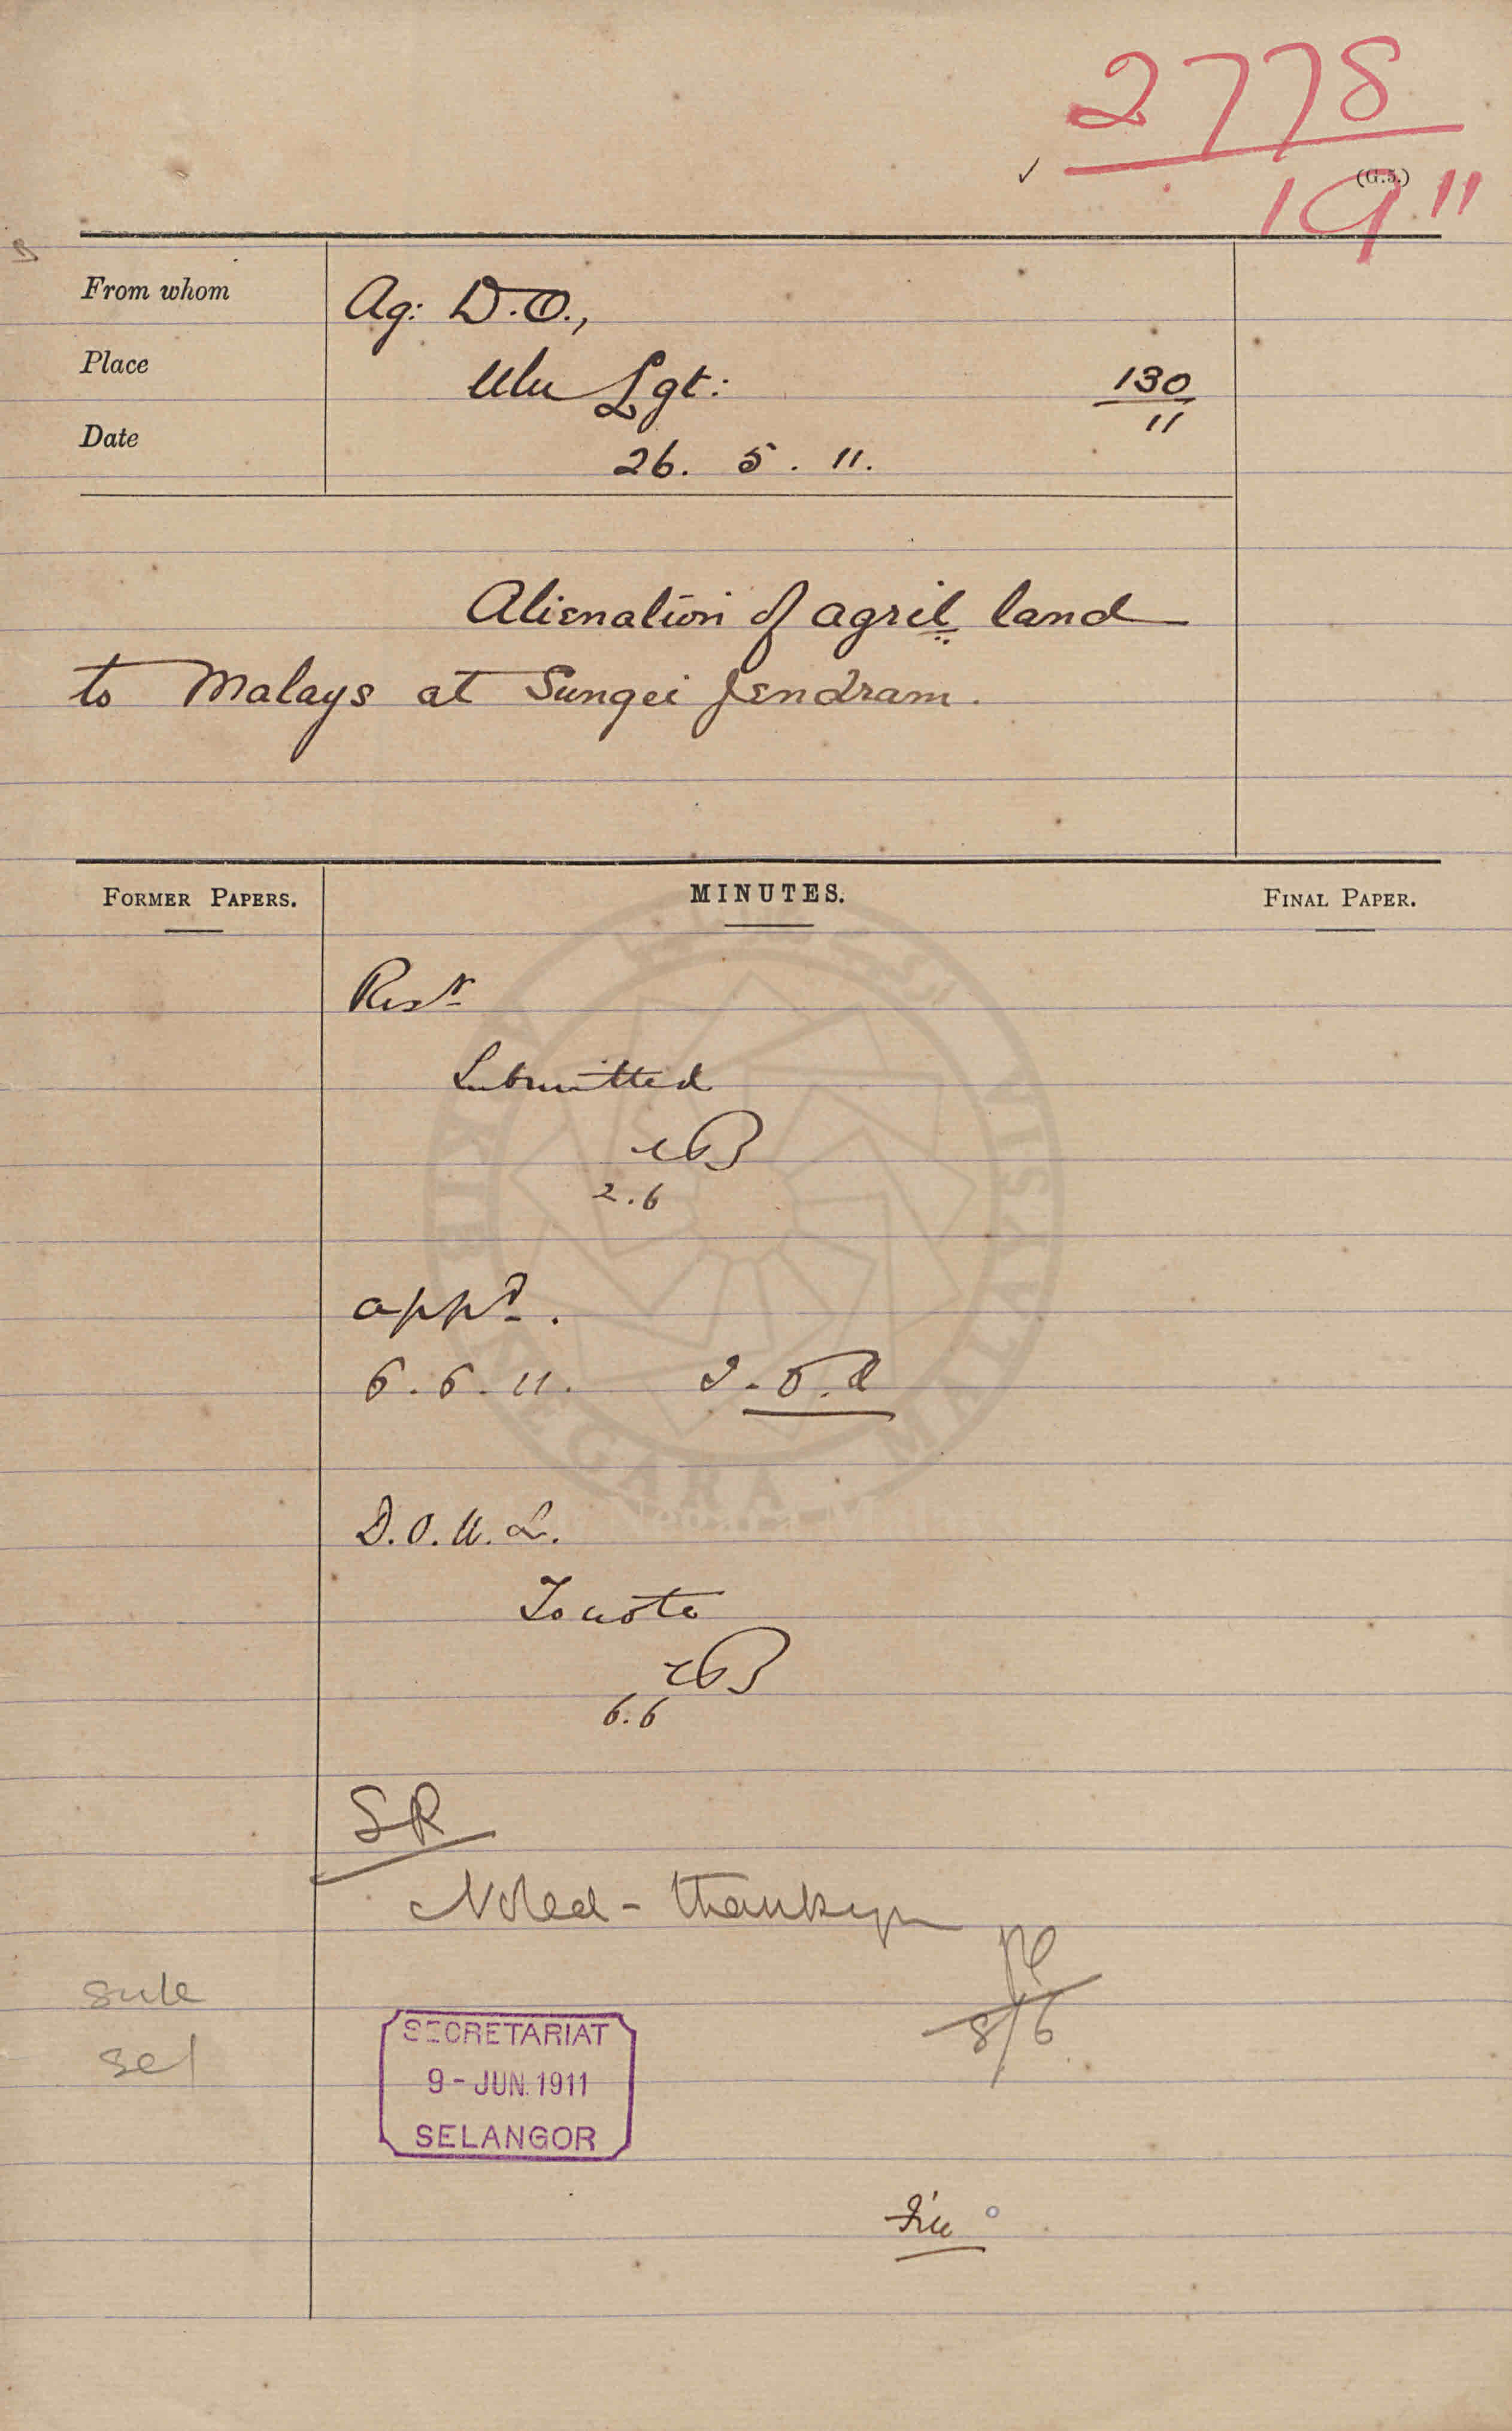 2778
1911
(G.5.)
From whom
Ag: D.O.,
Place
Ulu Lgt:
130
11
Date
26. 5. 11.
Alienation of agril land
to Malays at Sungei Jendram.
FORMER PAPERS.
MINUTES.
FINAL PAPER.
Resr
Submitted
2.6
appd.
6.6.11.
D.O.U.L.
To note
6.6
SR
Noted - thank you
8/6
SECRETARIAT
9 - JUN. 1911
SELANGOR
File
ARKIB NEGARA MALAYSIA